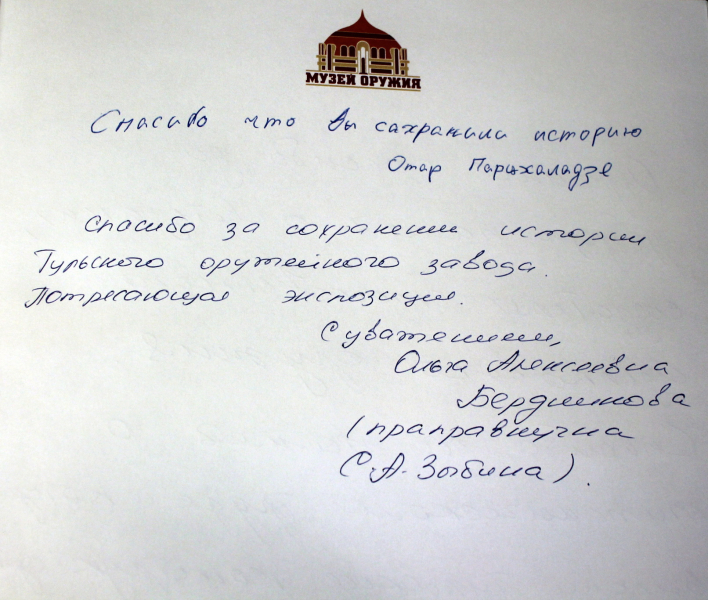 МУЗЕЙ ОРУЖИЯ
Спасибо что Вы сахранили историю
Отар Парцхаладзе
Спасибо за сохранение истории
Тульского оружейного завода.
Потресающая экспозиция.
С уважением,
Ольга Алексеевна
Бердникова
(праправнучка
С.А. Зыбина).